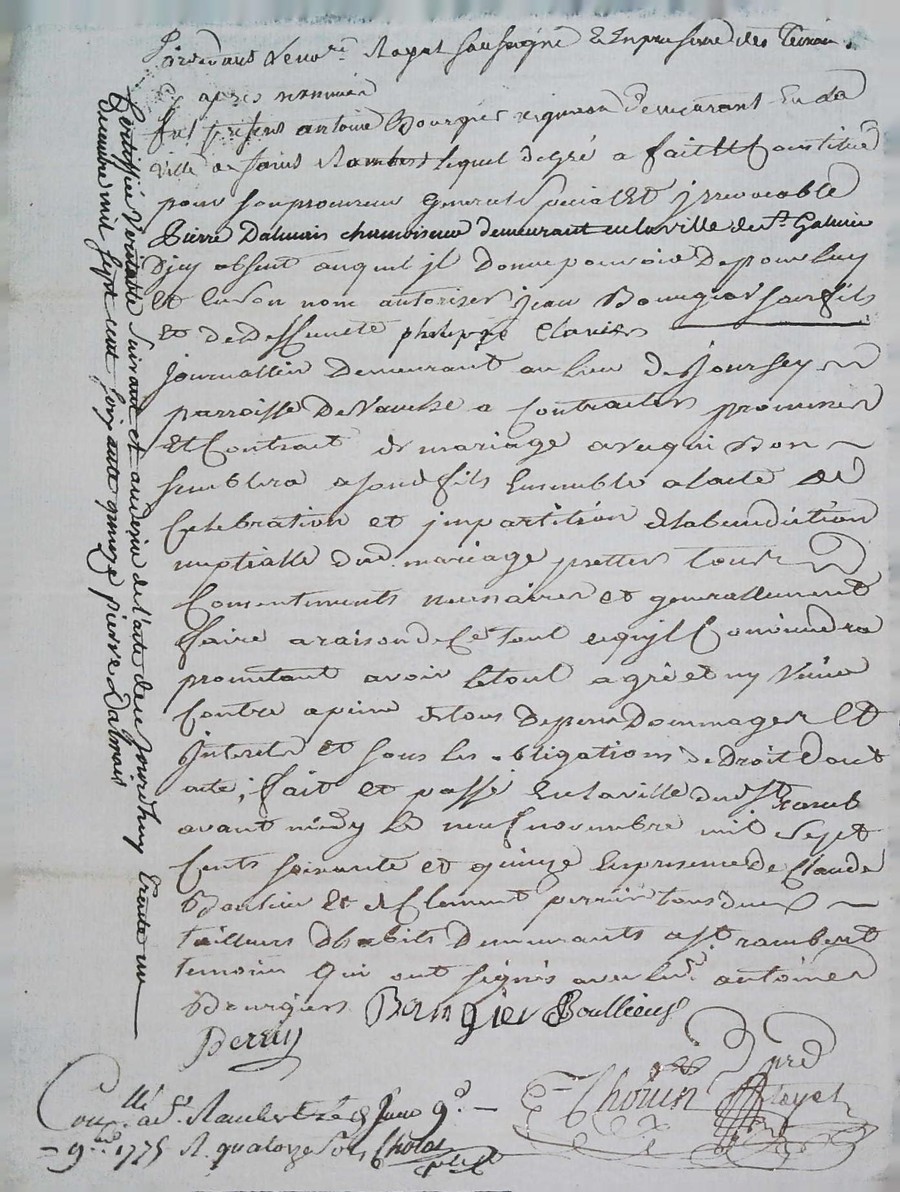 Pardevant Le no.re Royal soussigné & En presence des Témoins
Cy apres nommés
fut present antoine Bourgier vigneron demeurant En la
ville de saint Rambert lequel de gré a fait Et Constitué
pour son procureur general special Et jrrevocable
Pierre Dalmais chamoiseur demeurant en la ville de St. Galmier
D'jcy absent auquel jl donne pouvoir De pour Luy
et En son nom autoriser jean Bourgier son fils
et de deffuncte philippe Clavier
journallier Demeurant au lieu de Joursey
parroisse De a Contracter promesses
Et Contrait de mariage avec qui Bon
semblera a son d fils Ensemble a lacte de
Celebration et jmpartition de la benediction
nuptialle dud. mariage pretter tous
Consentements necessaires et generallement
faire a raison de Ce tout ce qu'jl Conviendra
promettant avoir le tout agréé et ny Venir
Contre a peine de tous depens Dommages Et
jnterets et sous les obligations de Droit Dont
acte, fait et passé En la ville du d St Ramb
avant midy Le neuf novembre mil sept
Cents soixante et quinze En presence de Claude
Boulieu Et de Clement perrin tous deux
tailleurs d'habits Demeurants a St. rambert
temoins qui ont signés avec led. antoine
Bourgier Bourgier Boullieuf
Perrin
Thoüin Royal
Conllé a St. Rambert Le 9e.
9bre. 1775 R. quatorze sols
Certiffié Veritable suivant et au desir de l'acte de ce jourdhuy trente un
decembre mil sept cent soixante quinze pierre Dalmais